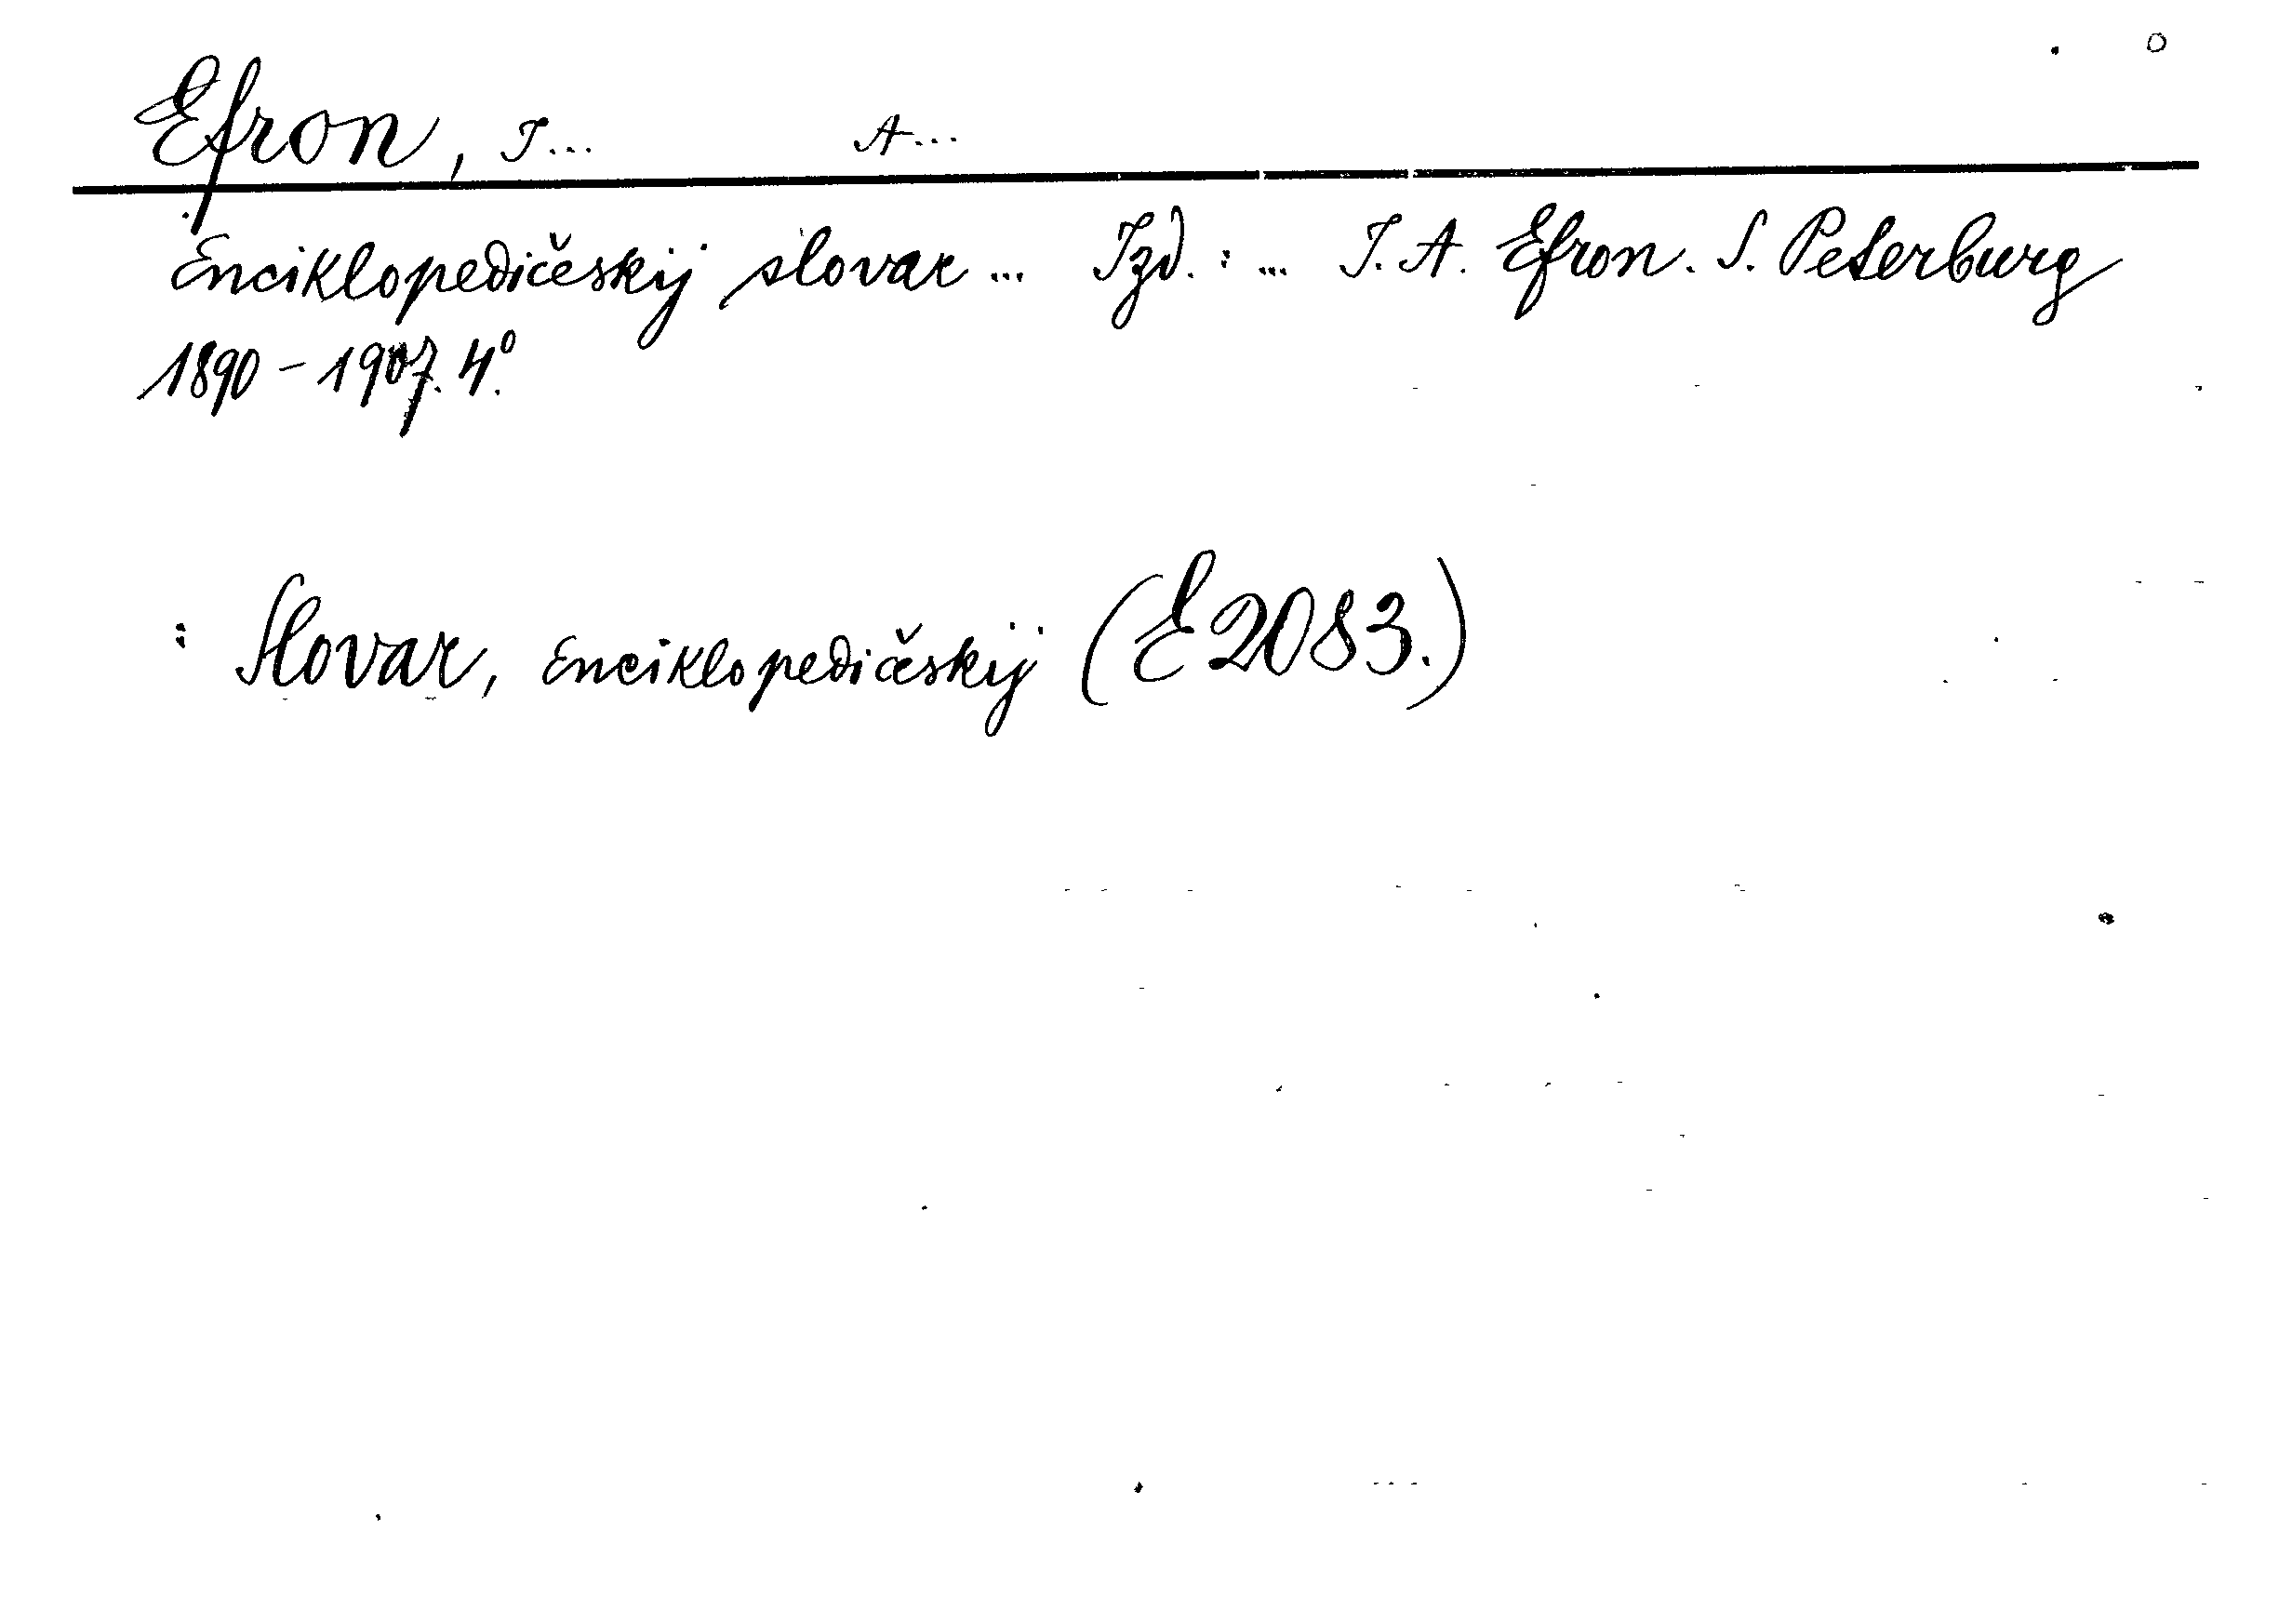 Efron, I... A...
Enciklopedičeskij slovar ... Izd.: ... I. A. Efron. S. Peterburg
1890-1907. 4°.
: Slovar, enciklopedičeskij (E 2083.)